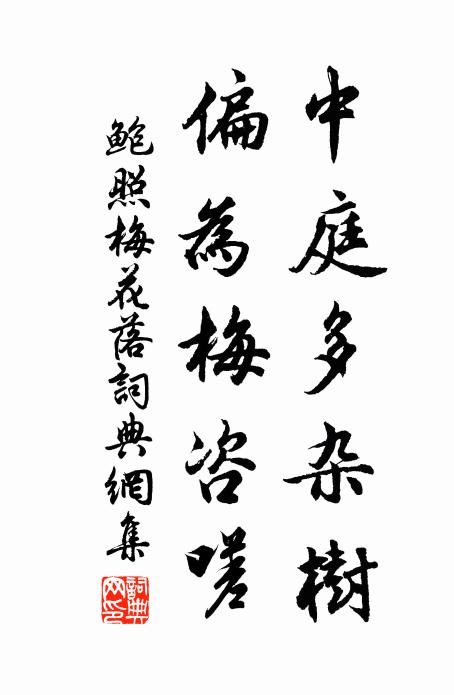 中庭多杂樹
偏為梅咨嗟
鲍照梅花落詞典網集
詞典网印